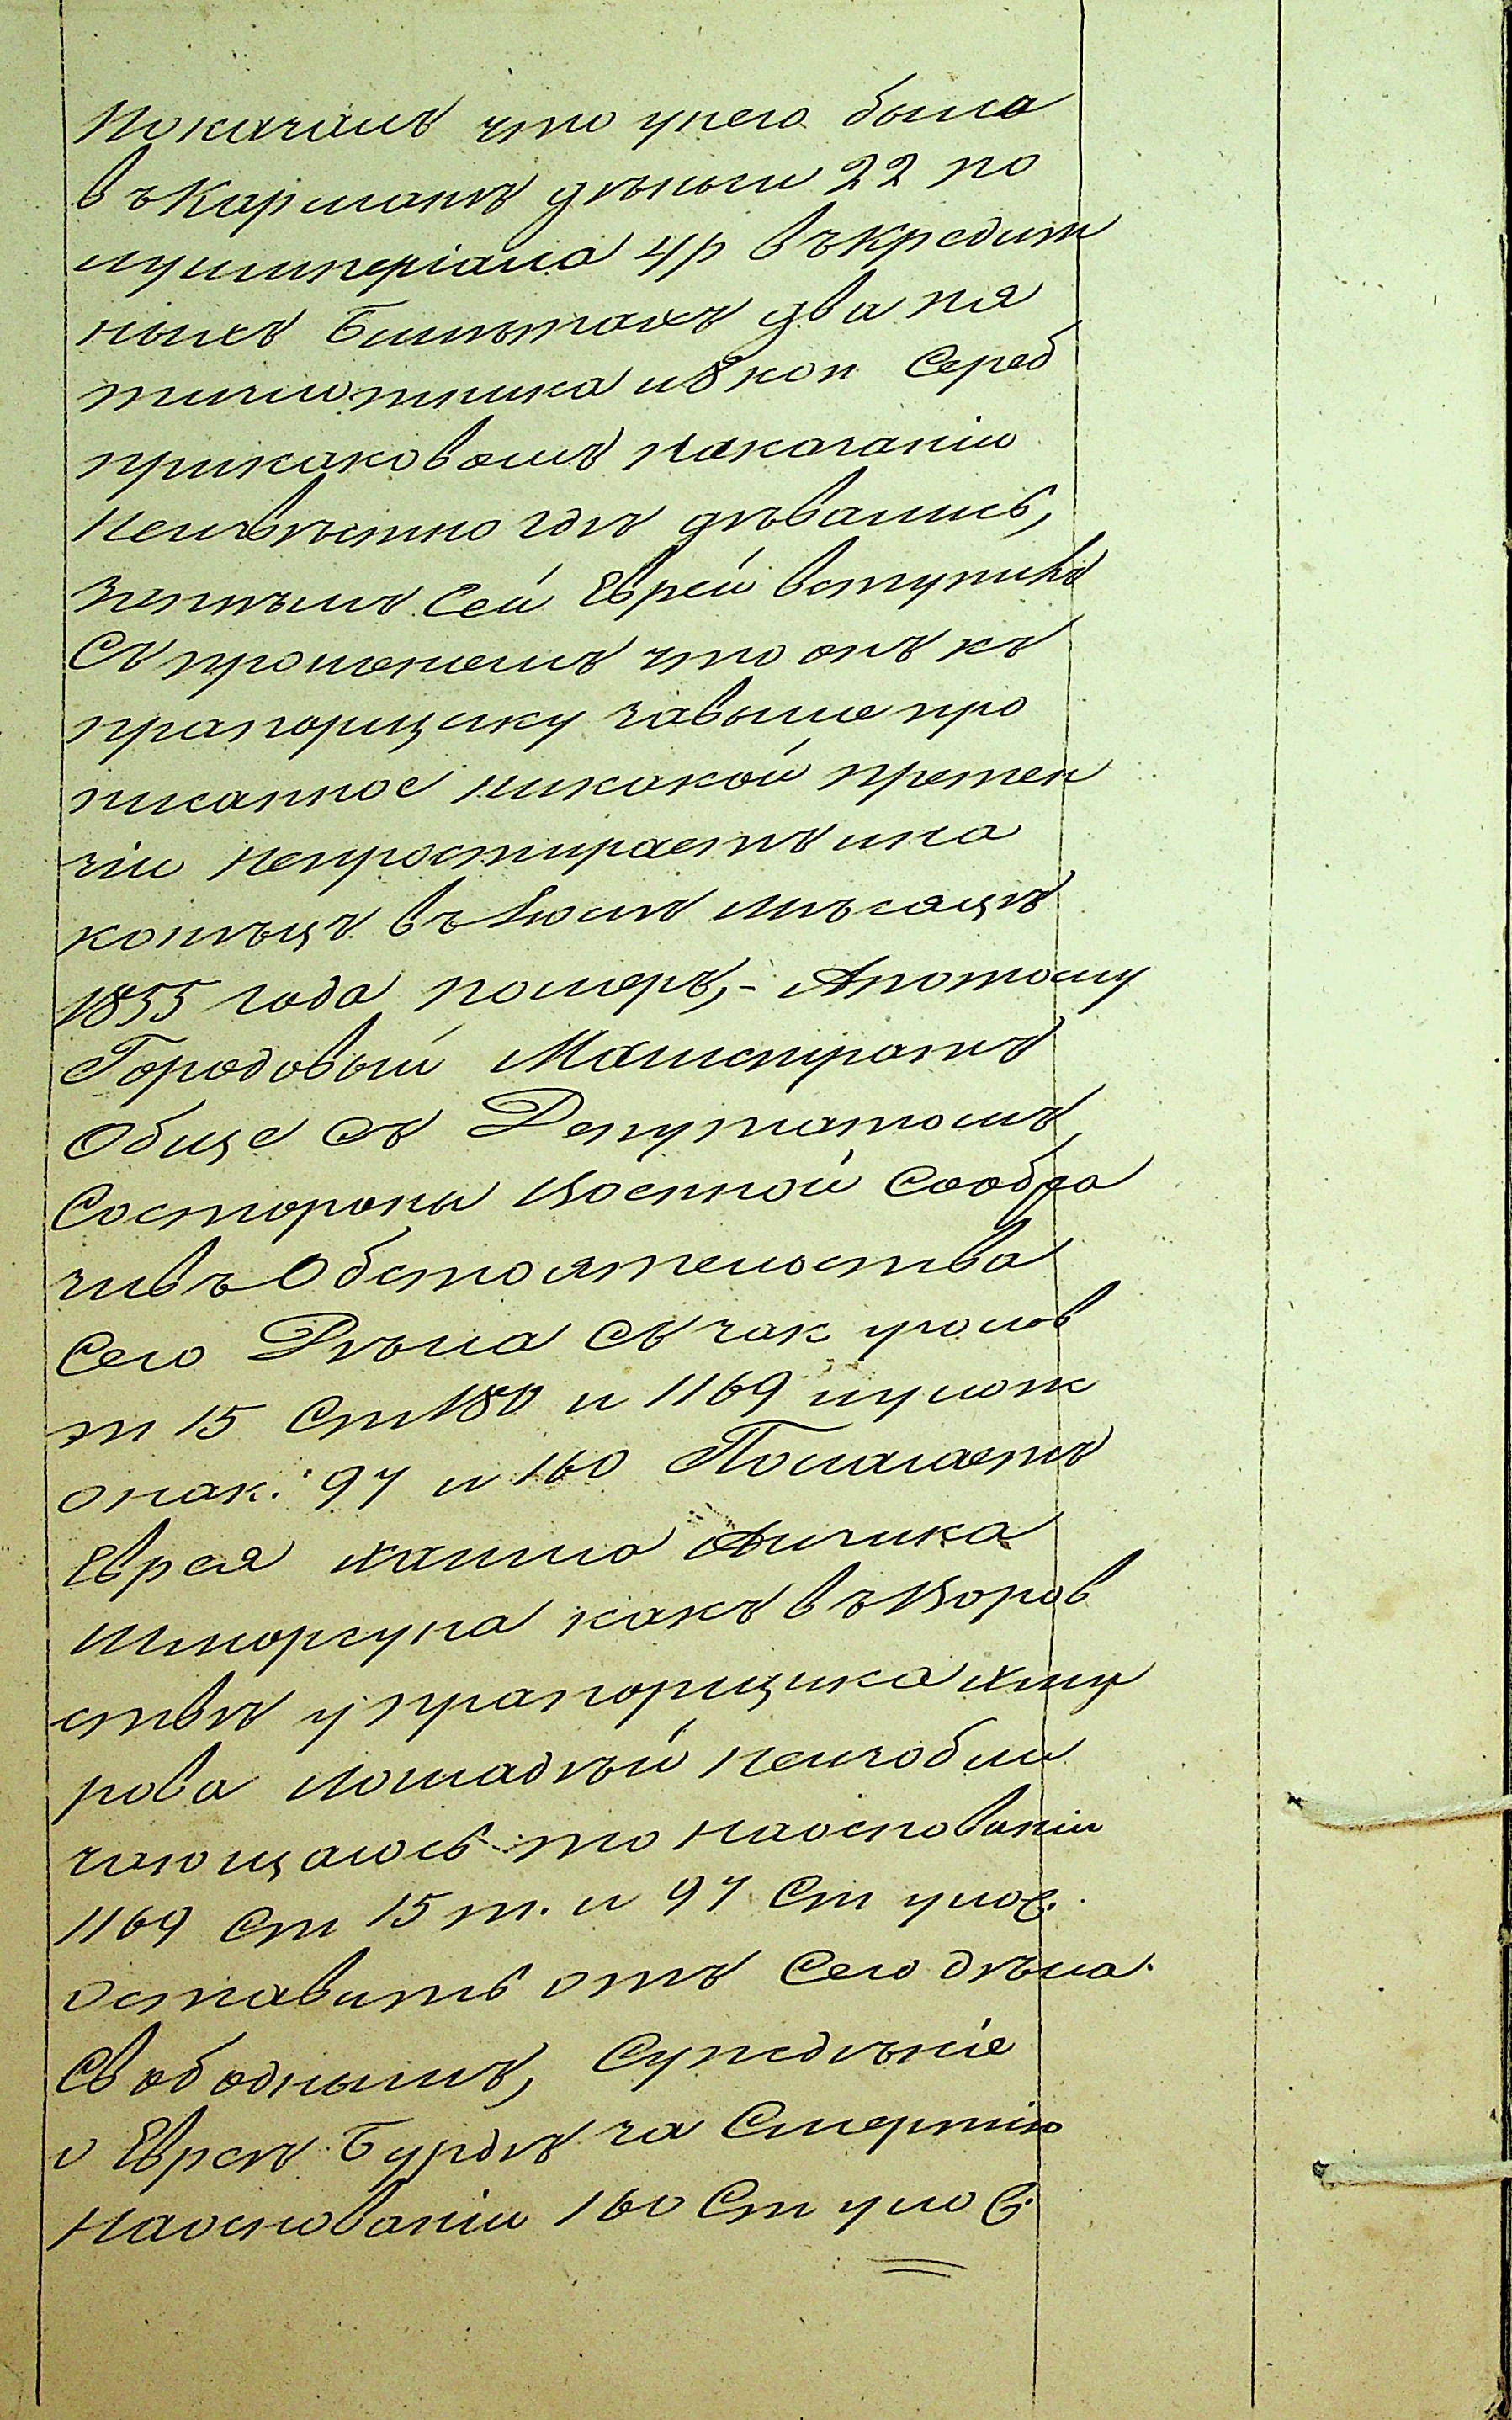 показалъ что унего было
въ Карманѣ дѣньги 22 по
луимперіала 4р въкредит
ныхъ Билѣтахъ два пя
тизлотника и 8 коп Сереб
прикаковомъ показаніи
Неизвѣстно гдѣ дѣвались,
затѣмъ Сей Еврей вступилъ
Съ прошенемъ что онъ къ
прапорщику завыше про
писанное никакой претен
зіи непростираетъ ина
конѣцъ въ Іюлѣ мѣсяцѣ
1855 года померъ,- Апотому
Городовый Магистратъ
Обще съ Депутатомъ
Состороны Военной Сообра
зивъ Обстоятельства
Сего Дѣла съ зак уголов
т 15 Ст 180 и 1169 иулож
онак: 97 и 160 Полагаетъ
Еврея Хаима Айзика
Шпоргуна какъ въ Воров
ствѣ упрапорщика
рова лошадѣй неизобли
чающагось то наосновании
1169 Ст 15 т. и 97 Ст улож.
оставить отъ Сего дѣла.
Свободнымъ, Суждѣніе
о Евреѣ Бурдѣ за Смертію
Наоснованіи 160 Ст улож.